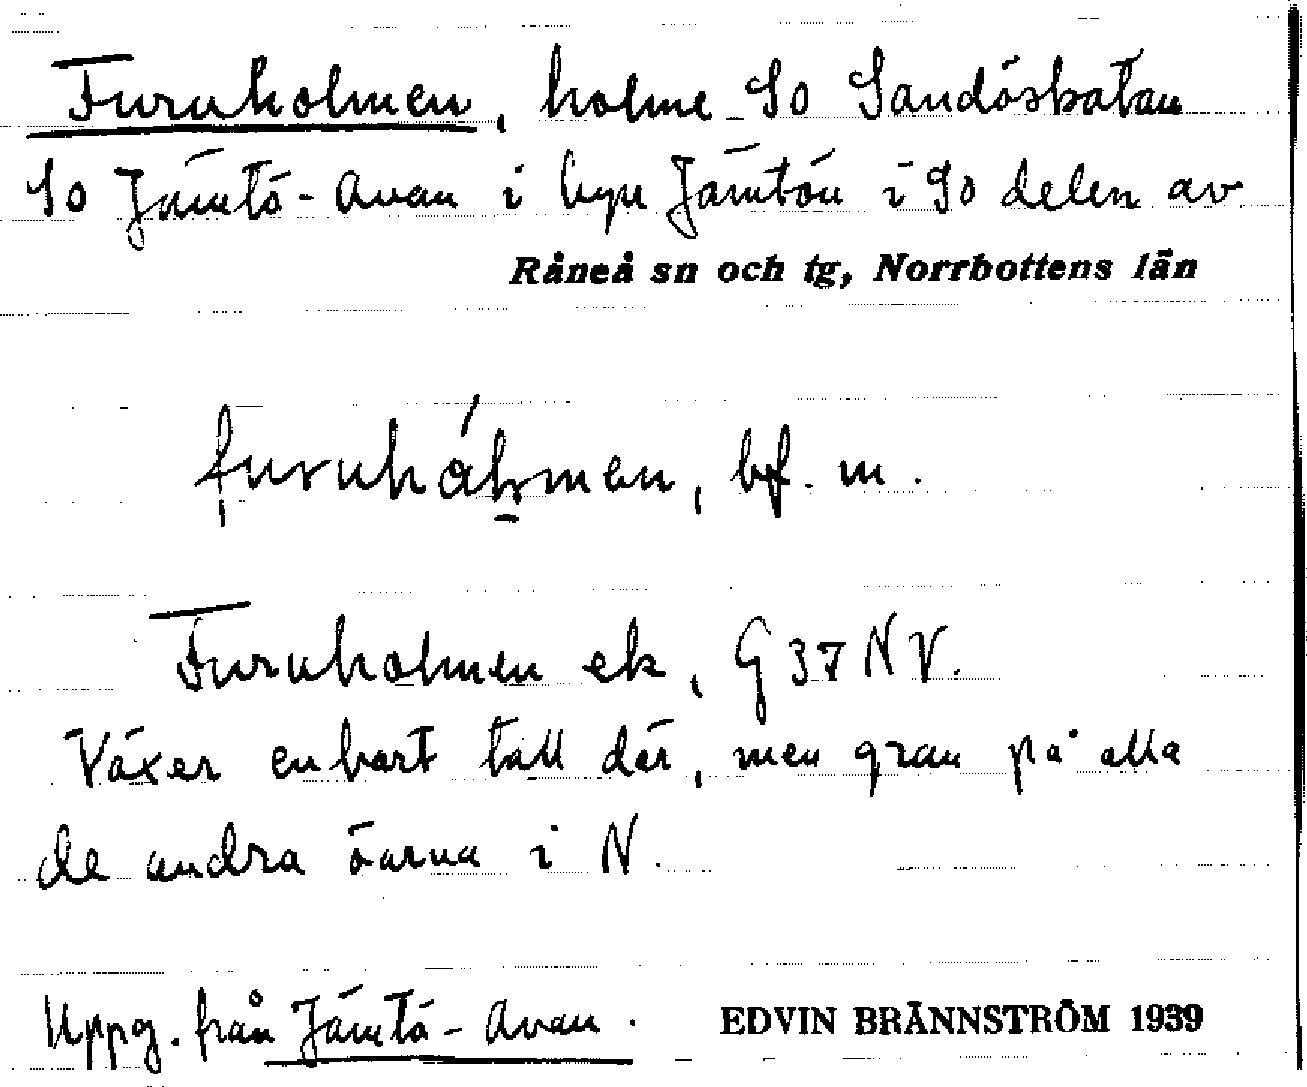 Furuholmen, holme SO Sandöskatan
SO Jämtö-Avan i byn Jämtön i SO delen av
Råneå sn och tg, Norrbottens län
furuhål̠men, bf. m.
Furuholmen ek, G 37 NV.
Växer enbart tall där, men gran på alla
de andra öarna i N.
Uppg. från Jämtö-Avan.
EDVIN BRÄNNSTRÖM 1939